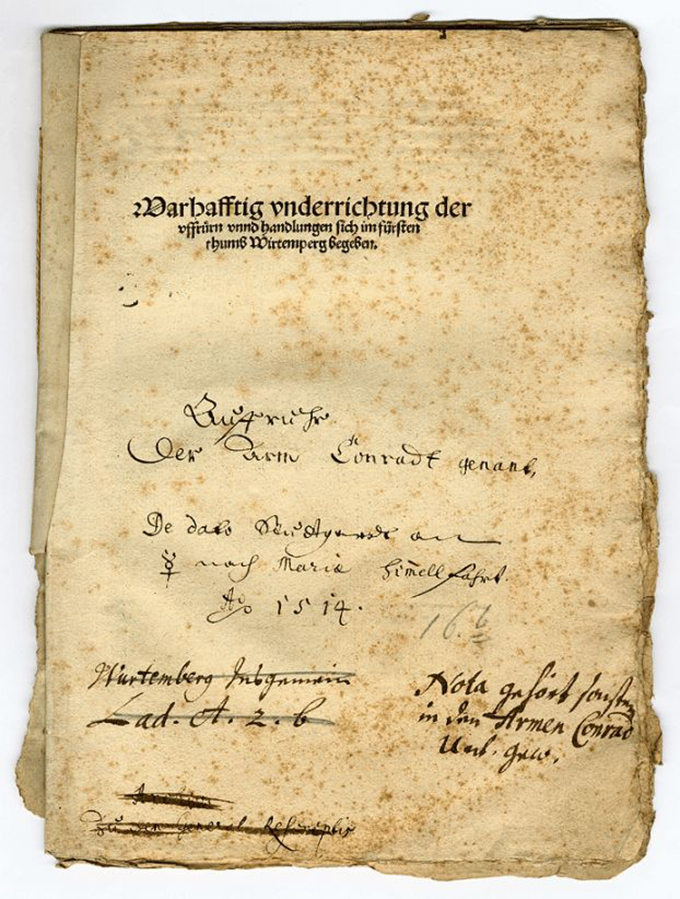 Warhafftig vnderrichtung der
vffrürn vnnd handlungen sich im fürsten
thumb Wirtemperg begeben.
Auffruhr
Der Arm Conradt genant,
De dato Stuttgardt am
☿ nach Mariæ Himmellfahrt
Ao 1514.
16.
Würtemberg Insgemein
Lad. A. 2. b
Nota gehört sonsten
in den Armen Conrad
zu den General Rescriptis